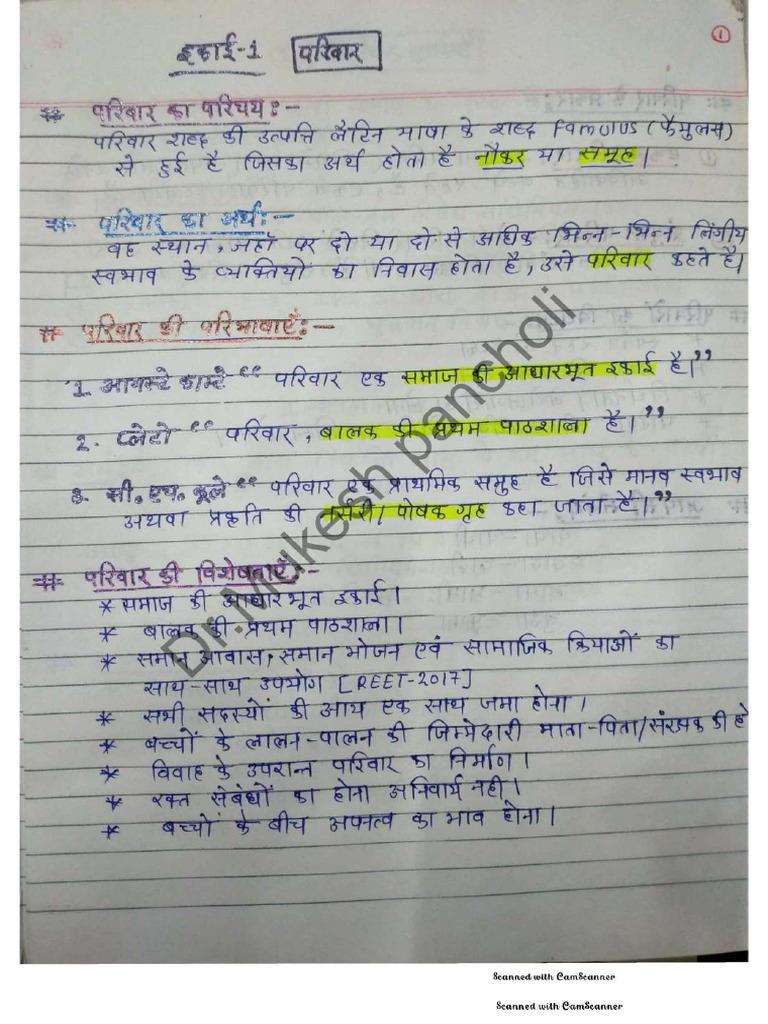 1
इकाई-1 परिवार
** परिवार का परिचय :-
परिवार शब्द की उत्पत्ति लैटिन भाषा के शब्द Famulus (फैमुलस)
से हुई है जिसका अर्थ होता है नौकर या समूह।
** परिवार का अर्थ :-
वह स्थान, जहाँ पर दो या दो से अधिक भिन्न-भिन्न लिंगीय
स्वभाव के व्यक्तियों का निवास होता है, उसे परिवार कहते है।
# परिवार की परिभाषाएँ :-
1. आगस्टे काम्टे “ परिवार एक समाज की आधारभूत इकाई है।”
2. प्लेटो “ परिवार, बालक की प्रथम पाठशाला है।”
3. सी. एच. कूले “ परिवार एक प्राथमिक समुह है जिसे मानव स्वभाव
अथवा प्रकृति की नर्सरी/पोषक गृह कहा जाता है।”
# परिवार की विशेषताएँ :-
* समाज की आधारभूत इकाई।
* बालक की प्रथम पाठशाला।
* समान आवास, समान भोजन एवं सामाजिक क्रियाओं का
साथ-साथ उपभोग [REET-2017]
* सभी सदस्यों की आय एक साथ जमा होना।
* बच्चों के लालन-पालन की जिम्मेदारी माता-पिता/संरक्षक की हो
* विवाह के उपरान्त परिवार का निर्माण।
* रक्त संबंधों का होना अनिवार्य नही।
* बच्चों के बीच अपनत्व का भाव होना।
Dr. Mukesh pancholi
Scanned with CamScanner
Scanned with CamScanner